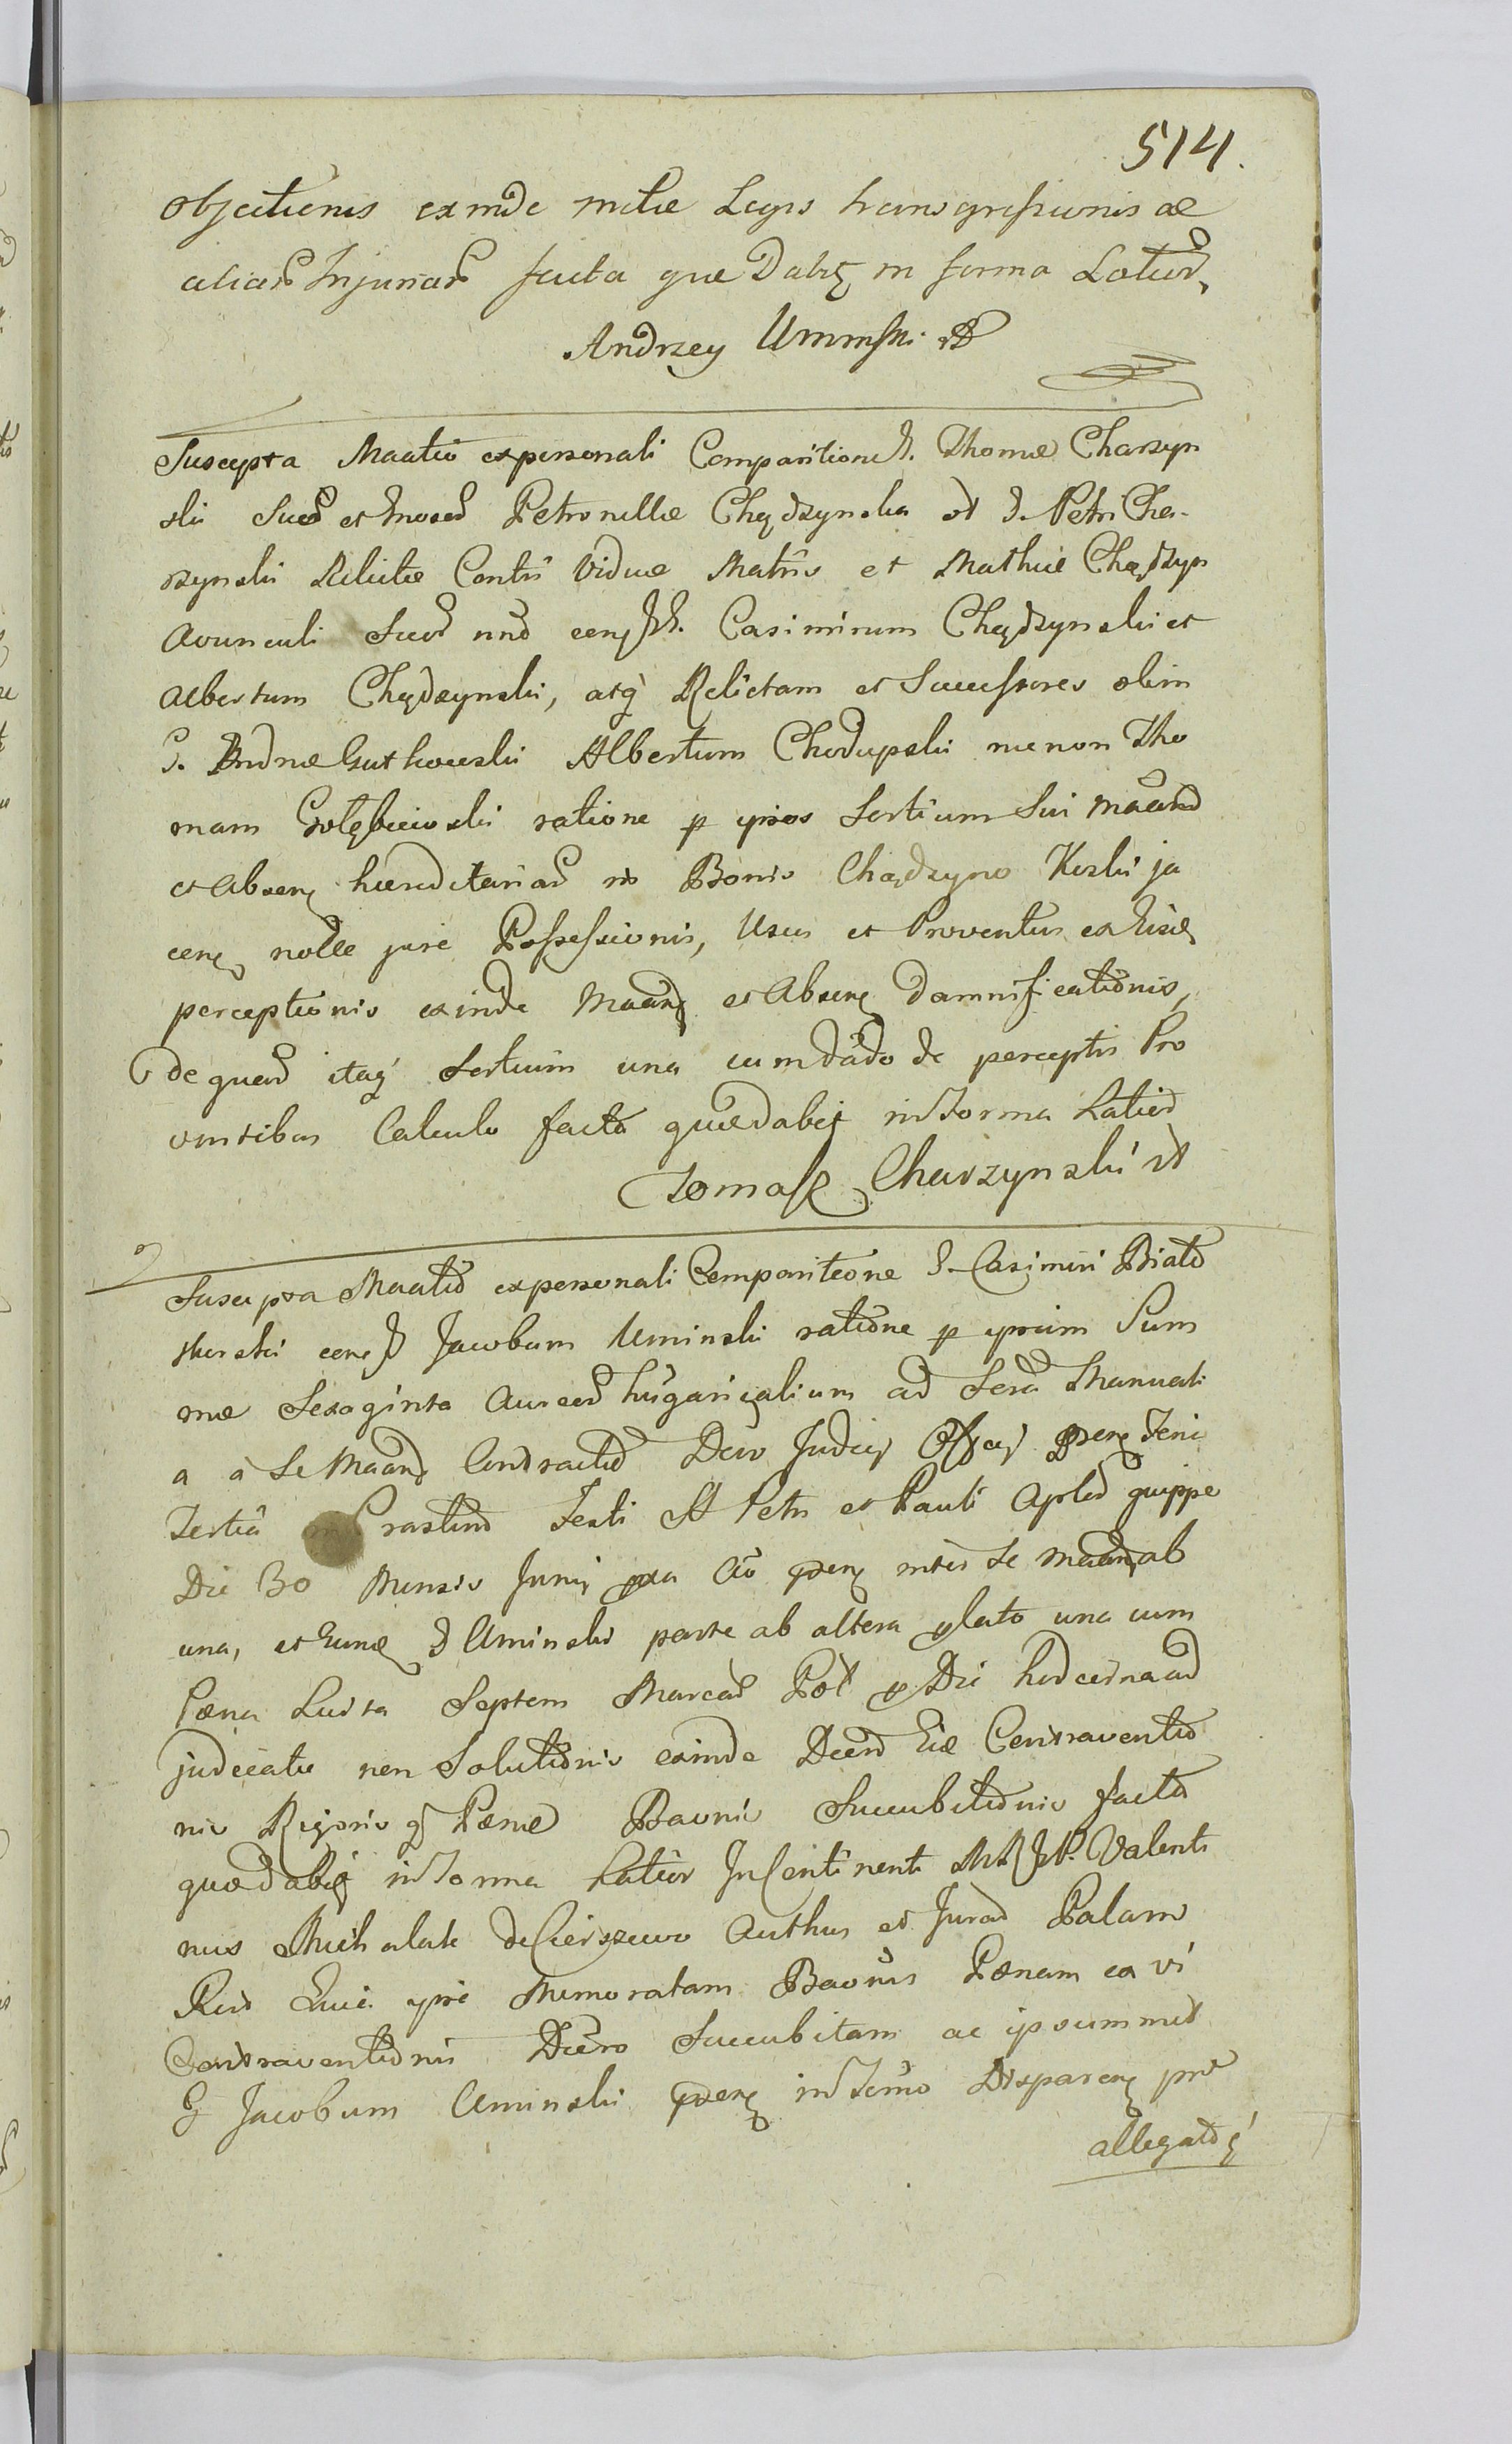 514.
objectionis exinde mutue Legis transgressionis ac
aliar Injuriar facta que Dabit in forma Latior
Andrzey Uminski
Suscepta Maatio ex personali Comparitione G. Thomæ Charzyn
ski Suo et nosed Petronellæ Chędzynska et G. Petri Cha-
rzynski Relictæ Conti Viduæ Matris et Mathiæ Chędzyn
avunculi Suor nnõ ceng G. Casimirum Chędzynski et
Albertum Chędzynski, atq Relictam et Successores olim
G. Andræ Gutkowski Albertum Chodupski nenon Tho
mam Gołębiewski ratione p ipsos Sortium Sui Maand
et Abseng hæreditariar in Bonis Chędzyno Koski ja
ceng nolle jure Possessionis, Usus et Proventus ex Eisd
perceptionis exinde Maang et Abseng damnificationis,
de quar itaq Sortium una cum dãdo de perceptis Pro
ventibus Calculo facta quæ dabit in Forma Latior
Tomasz Charzynski
Suscepta Maatio ex personali Comparitione G. Casimiri Biało
skurski ceng G Jacobum Uminski ratione p ipsum Sum
mæ Sexaginta Aureor hũgaricalium ad Serã Manuali
a a Se Maand Contractũ Decr Judicij Officij Pseng Feria
Tertiã in Crastino Festi SS Petri et Pauli Aplor quippe
Die 30 Mensis Junij pxa Aõ pseng inter Se Maand ab
una, et Eund G Uminski parte ab altera plato una cum
Pæna Luita Septem Marcar Pol p Die hodierna ad
judicatæ non Solutionis exinde Decro Eid Contraventio
nis Rigoris q Pænæ Bannis Succubitionis facta
quæ dabit in Forma Latior In Continenti Valenti
nus Michalak de Cierszewo Authus et Jurad Palam
Reco Quia ipse Memoratam Bannis Pænam ex vi
Contraventionis Decro Succubitam ac ipsummet
G Jacobum Uminski pseng in Termo Disparen pro
allegato q